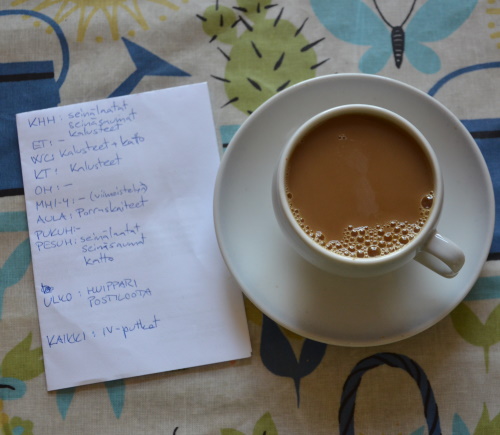 KHH: seinälaatat
seinäsaumat
kalusteet
ET: -
WC: Kalusteet + katto
KT: Kalusteet
OH: -
MH1-4: - (viimeistely)
AULA: Porraskaiteet
PUKUH: -
PESUH: seinälaatat
seinäsaumat
katto
ULKO: HUIPPARI
POSTILOOTA
KAIKKI: IV-putket